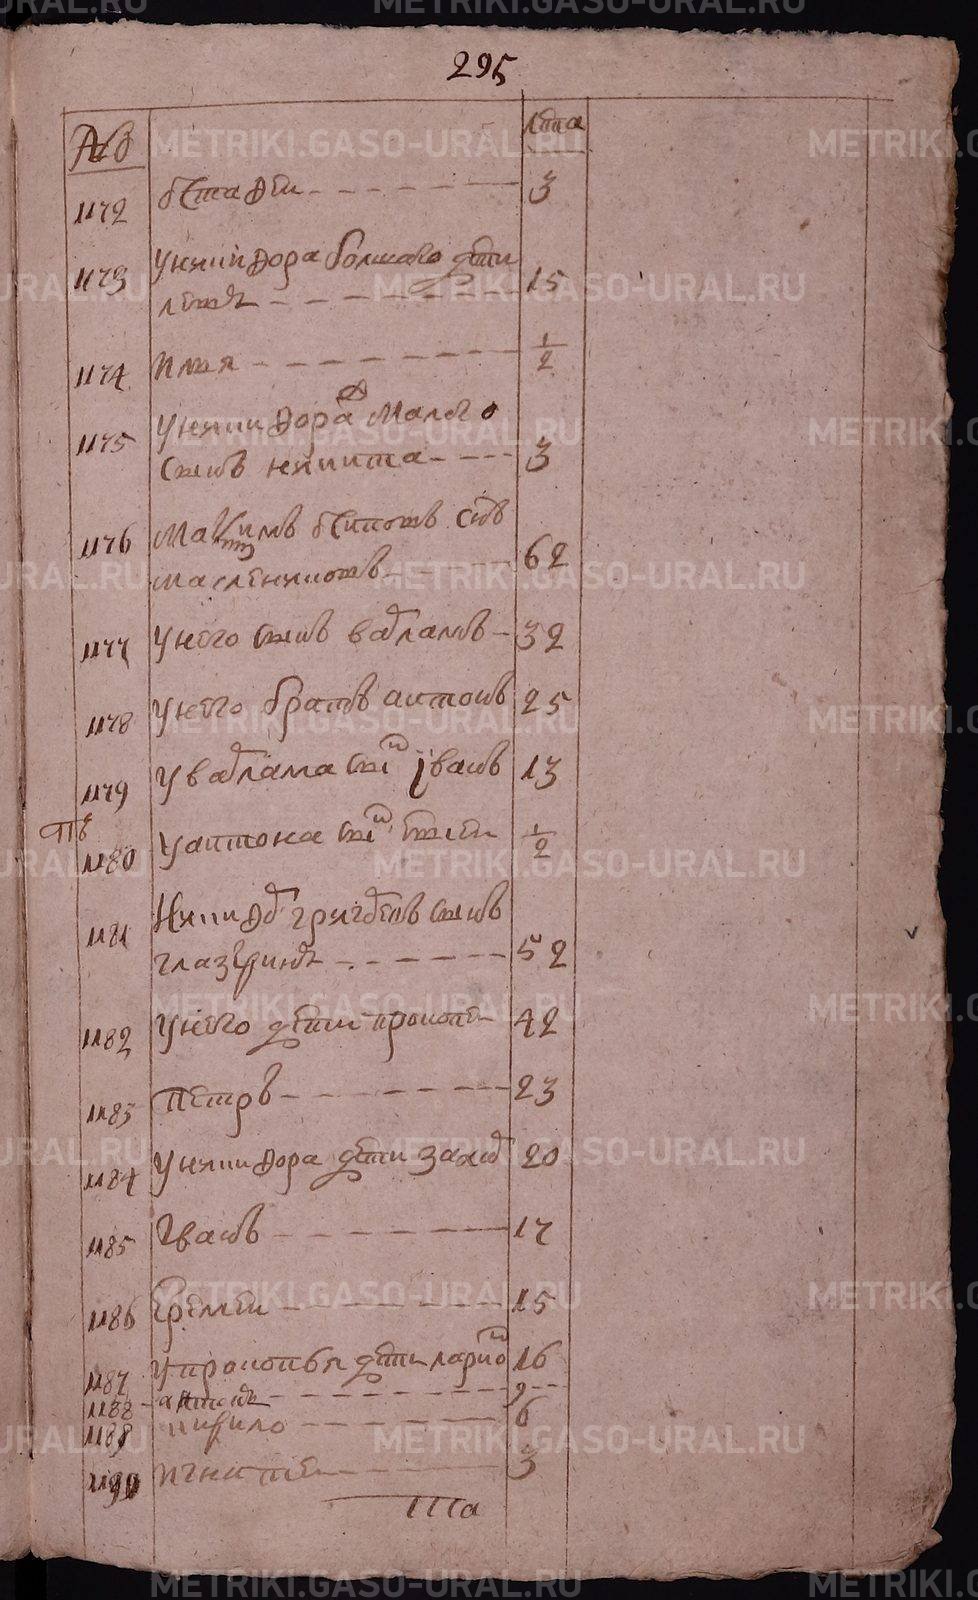 295
№ лѣта
1172 Естафеи 3
1173 У никифора болшаго дѣти
левъ 15
1174 илья 1/2
1175 У никифора Малого
сынъ никита 3
1176 Маѯимъ осиповъ снъ
масленниковъ 62
1177 У него сынъ варламъ 32
1178 У него братъ антонъ 25
1179 У варлама снъ иванъ 13
1180 У антона снъ 1/2
1181 Никифоръ григорьевъ сынъ
52
1182 У него дѣти прокопеи 42
1183 Петръ 23
1184 У никифора дѣти захаръ 20
1185 Иванъ 17
1186 Еремеи 15
1187 У прокопья дѣти ларион 16
1188 антонъ 9
1189 кирило 6
1190 игнатеи 3